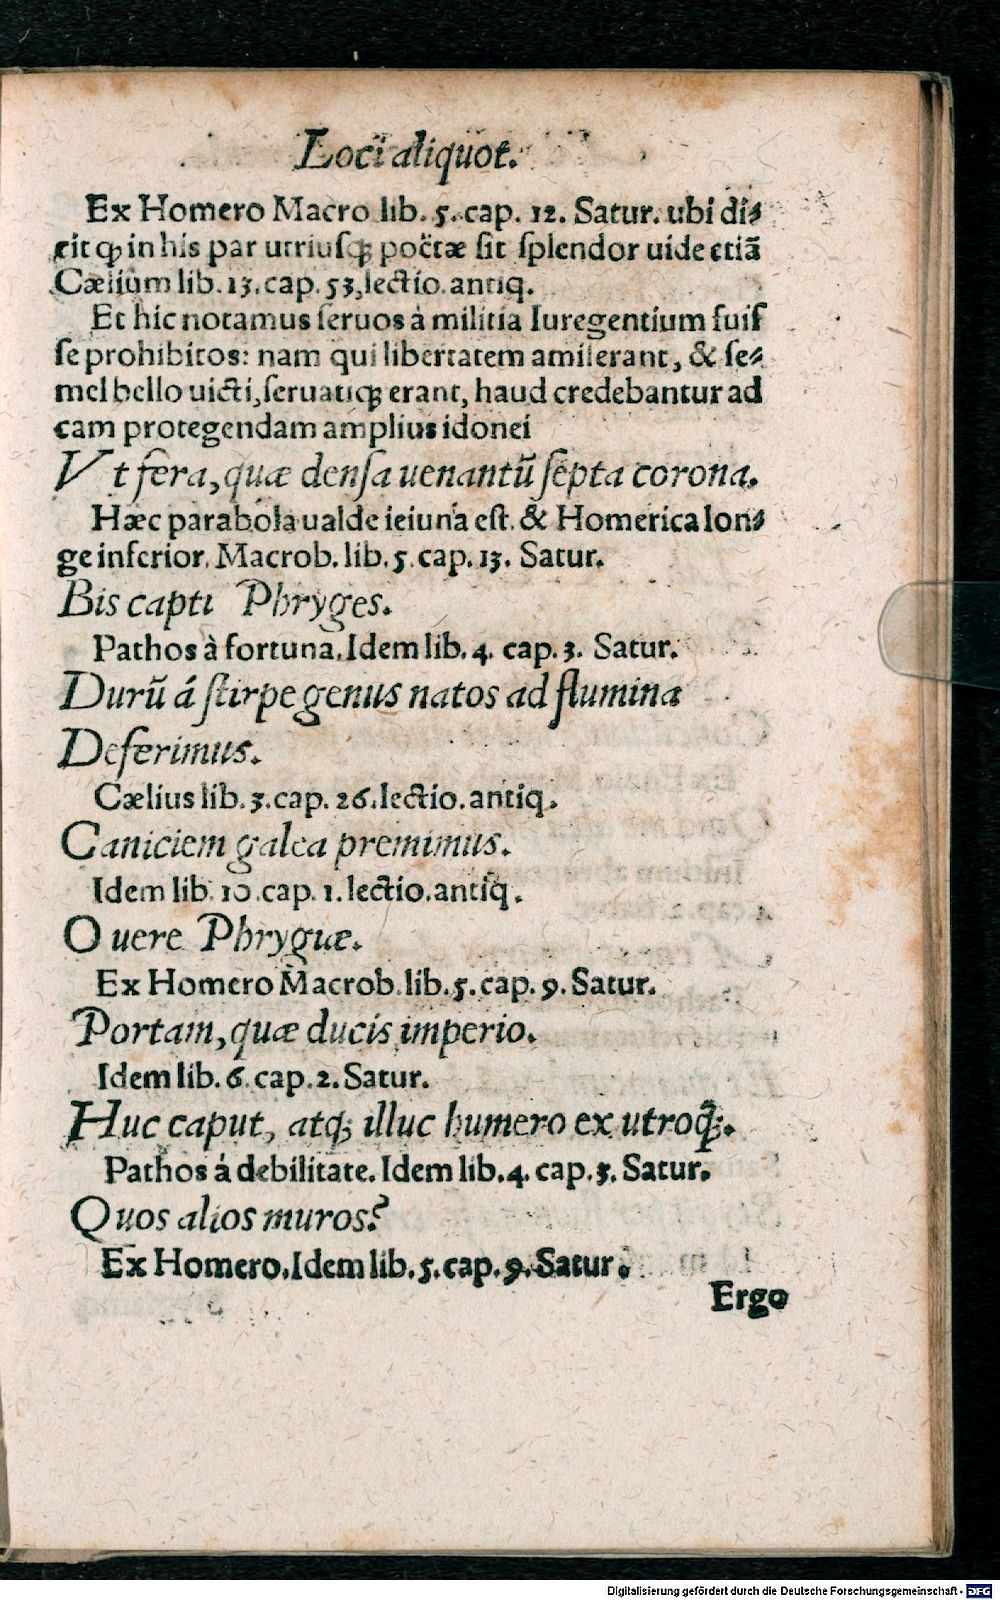 Loci aliquot.
Ex Homero Macro lib. 5. cap. 12. Satur. ubi di⸗
cit ꝙ in his par utriusqꝫ poëtæ sit splendor uide etiã
Cælium lib. 13. cap. 53, lectio. antiq.
Et hic notamus seruos à militia Iuregentium fuis
se prohibitos: nam qui libertatem amiserant, & se⸗
mel bello uicti, seruatiqꝫ erant, haud credebantur ad
eam protegendam amplius idonei
Vt fera, quæ densa uenantũ septa corona.
Hæc parabola ualde ieiuna est. & Homerica lon⸗
ge inferior. Macrob. lib. 5. cap. 13. Satur.
Bis capti Phryges.
Pathos à fortuna. Idem lib. 4. cap. 3. Satur.
Durũ á stirpe genus natos ad flumina
Deferimus.
Cælius lib. 3. cap. 26. lectio. antiq.
Caniciem galea premimus.
Idem lib. 10. cap. 1. lectio. antiq.
O uere Phrygiæ.
Ex Homero Macrob. lib. 5. cap. 9. Satur.
Portam, quæ ducis imperio.
Idem lib. 6. cap. 2. Satur.
Huc caput, atqꝫ illuc humero ex utroqꝫ.
Pathos á debilitate. Idem lib. 4. cap. 3. Satur.
Quos alios muros?
Ex Homero. Idem lib. 5. cap. 9. Satur.
Ergo
Digitalisierung gefördert durch die Deutsche Forschungsgemeinschaft - DFG